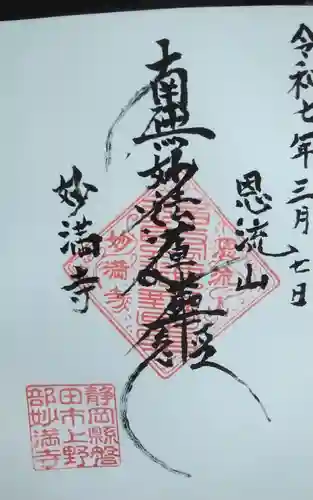 令和七年三月七日
恩流山
南無妙法蓮華経
妙満寺
恩流山
妙満寺
静岡縣磐
田市上野
部妙満寺